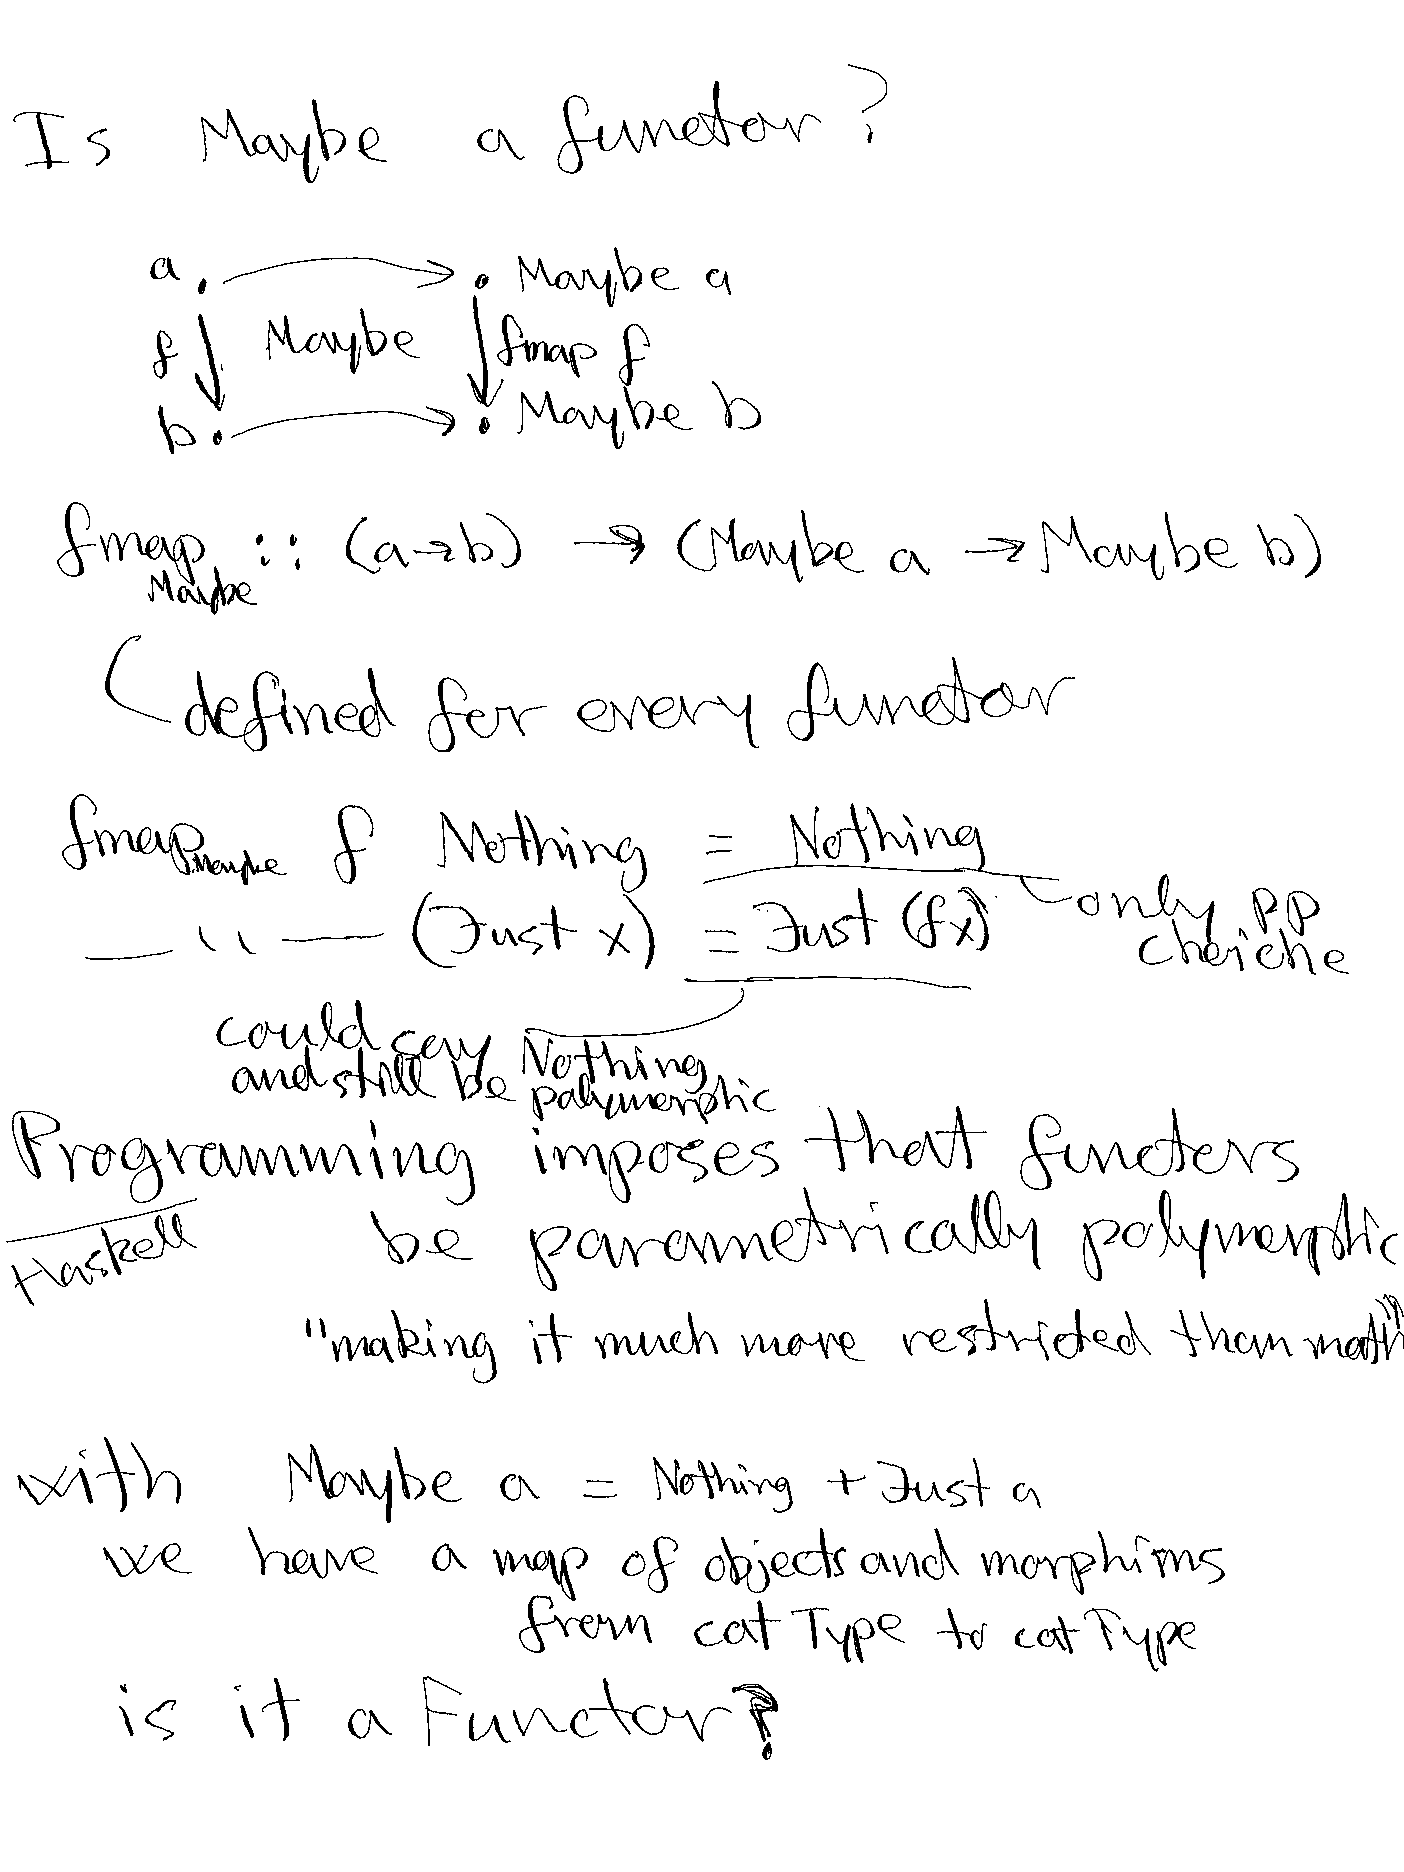 Is Maybe a functor?
a Maybe a
f Maybe fmap f
b Maybe b
fmap Maybe :: (a→b) → (Maybe a → Maybe b)
defined for every functor
fmap Maybe f Nothing = Nothing
— '' — (Just x) = Just (f x)
only pp
choiche
could say Nothing
and still be polymorphic
Programming imposes that functors
Haskell be parametrically polymorphic
"making it much more restricted than math"
with Maybe a = Nothing + Just a
we have a map of objects and morphims
from cat Type to cat Type
is it a Functor?